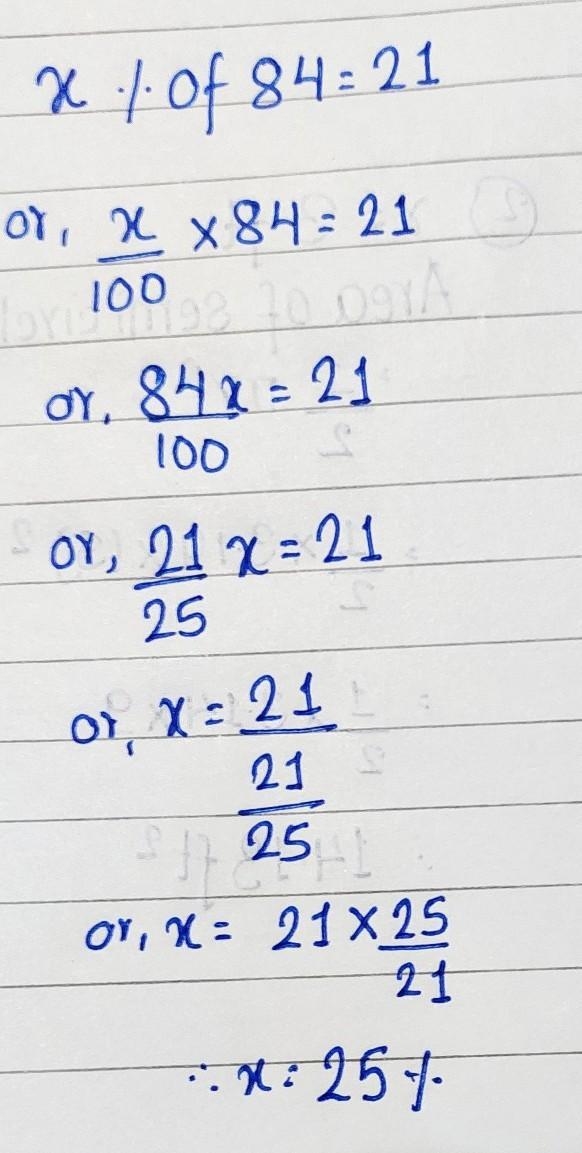 x % of 84 = 21
or, x/100 × 84 = 21
or, 84x/100 = 21
or, 21/25 x = 21
or, x = 21/(21/25)
or, x = 21 × 25/21
∴ x = 25 %